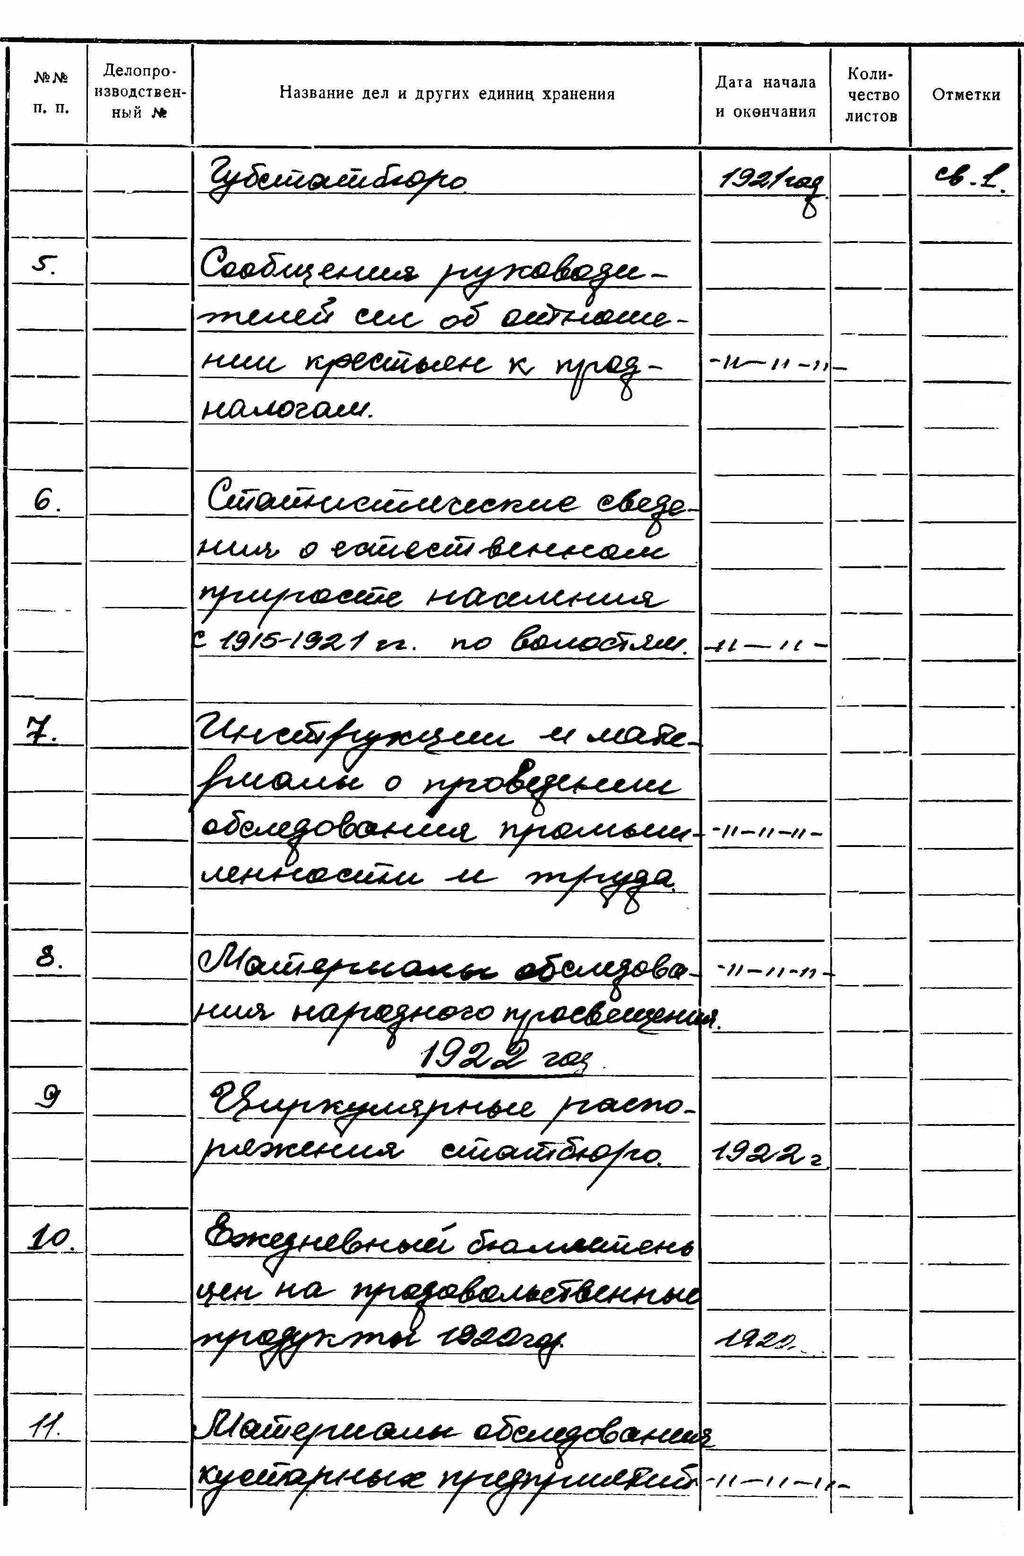 №№ п. п.
Делопро-
изводствен-
ный №
Название дел и других единиц хранения
Дата начала
и окончания
Коли-
чество
листов
Отметки
Губстатбюро. 1921 год св. 1.
5. Сообщения руководи-
телей сел об отноше-
нии крестьян к прод- -"-"-"-
налогам.
6. Статистические сведе-
ния о естественном
приросте населения
с 1915-1921 гг. по волостям. -"-"-
7. Инструкции и мате-
риалы о проведении
обследования промыш- -"-"-"-
ленности и труда.
8. Материалы обследова- -"-"-"-
ния народного просвещения.
1922 год.
9 Циркулярные распо-
ряжения статбюро. 1922 г.
10. Ежедневный бюллетень
цен на продовольственные
продукты 1920 год.
11. Материалы обследования
кустарных предприятий -"-"-"-